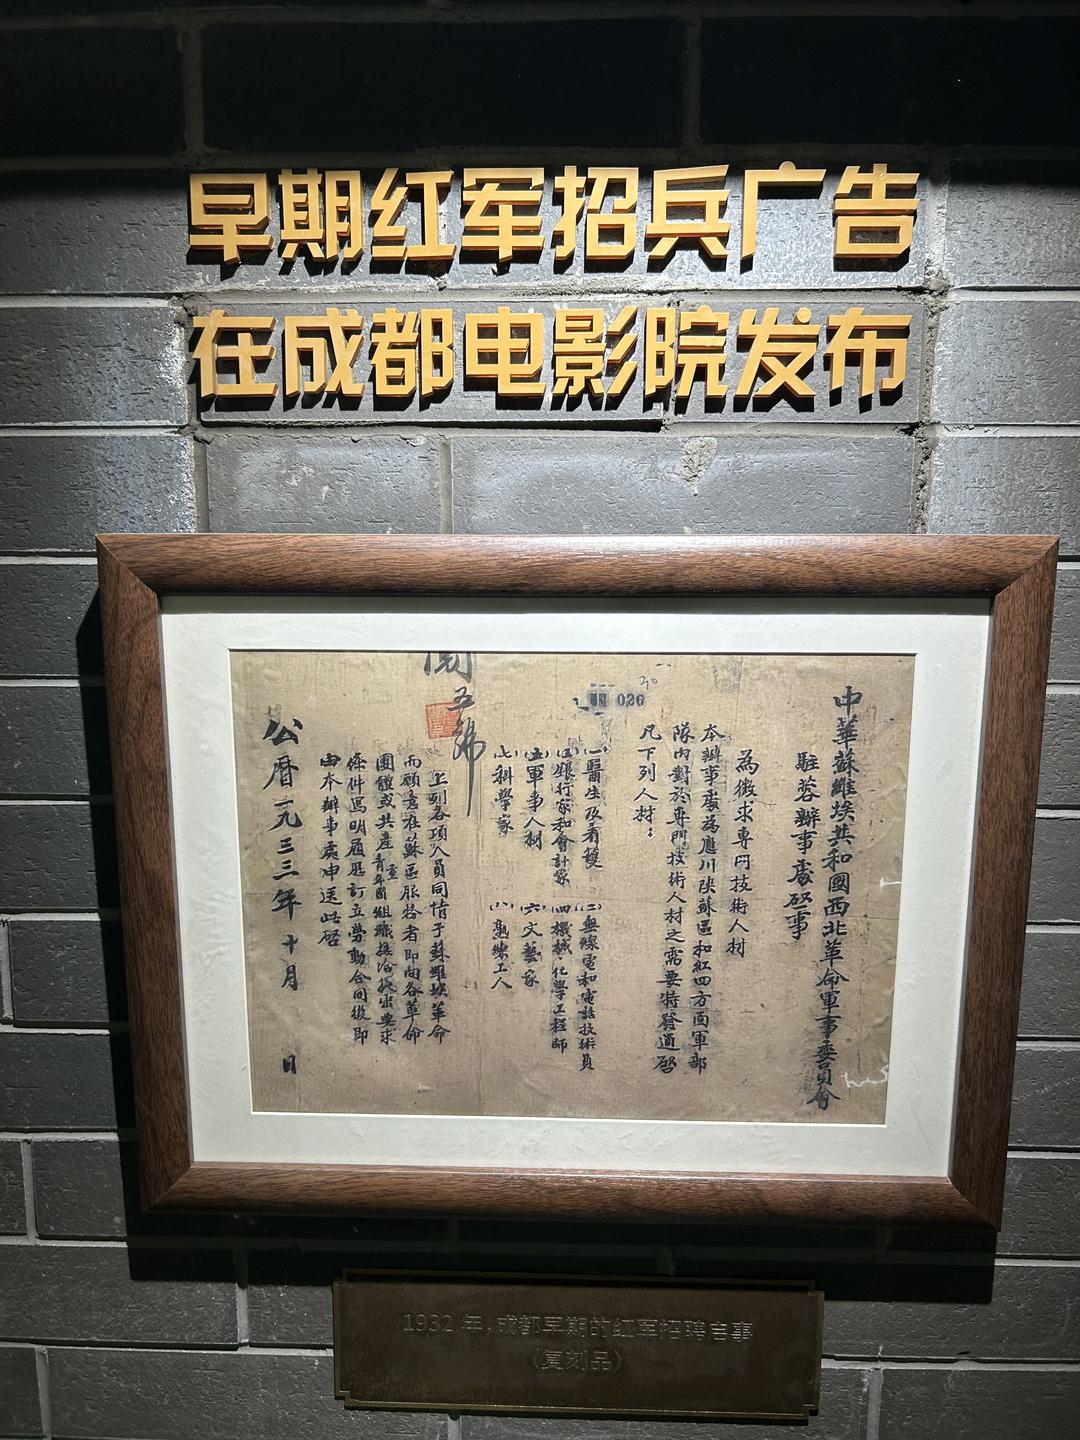 早期红军招兵广告
在成都电影院发布
中華蘇維埃共和國西北革命軍事委員會
駐蓉辦事處啓事
為徵求專門技術人材
本辦事處為應川陕蘇區和紅四方面軍部
隊内對於專門技術人材之需要特發通啓
凡下列人材：
(一)醫生及看護 (二)無線電和電話技術員
(三)銀行家和會計家 (四)機械·化學工程師
(五)軍事人材 (六)文藝家
(七)科學家 (八)熟練工人
上列各項人員同情于蘇維埃革命
而願意在蘇區服務者即向各革命
團體或共産青年團組織接洽提出要求
條件寫明履歷訂立勞動合同後即
由本辦事處申送此啓
公曆一九三三年十月 日
五號
026
1932 年,成都早期的红军招聘启事
(复刻品)